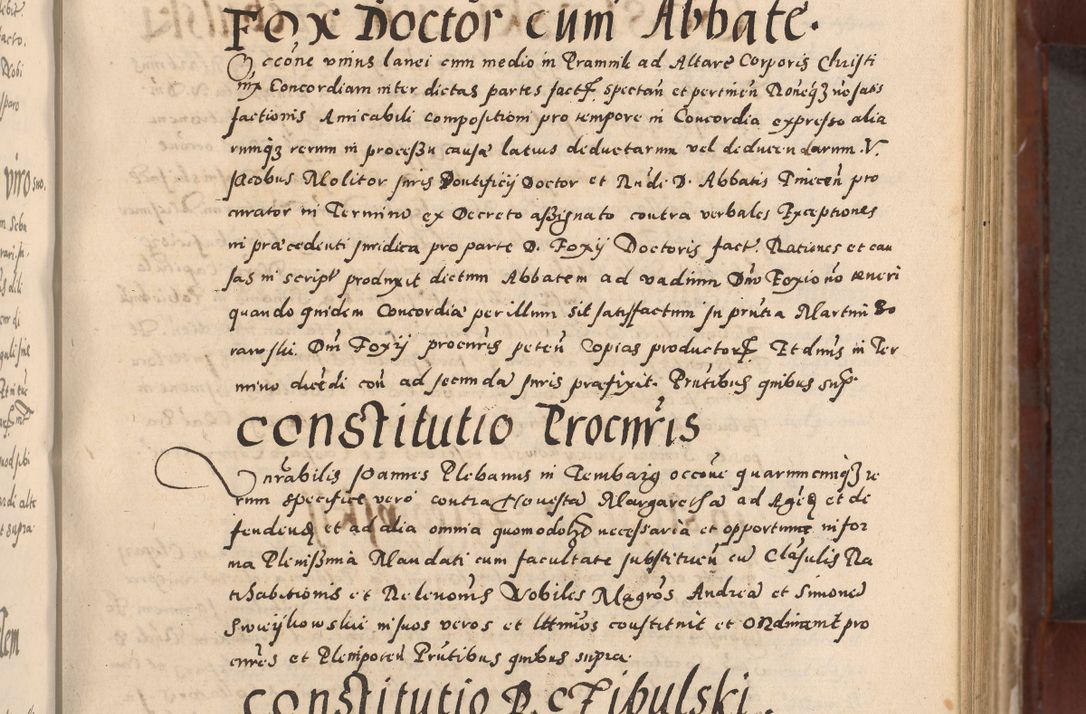 Fox Doctor cum Abbate.
Occōne vnius lanei cum medio in Pramnik ad Altare Corporis Christi
iux Concordiam inter dictas partes fact. spectan̄ et pertinen̄ Noneqʒ no satis
factionis Amicabili compositioni pro tempore in Concordia expresso alia
rumqʒ rerum in processu causæ latius deductarum vel deducendarum. V.
Jacobus Molitor Juris Pontificij Doctor et Rndi D. Abbatis Pniecen̄ pro
curator in Termino ex Decreto assignato contra verbales Exceptiones
in præcedenti Juridica pro parte D. Foxij Doctoris fact. Rationes et cau
sas in script produxit dictum Abbatem ad vadium Dno Foxio no teneri
quando quidem Concordiæ per illum sit satisfactum In pn̄tia Martini Bo
rawski. Dm̄ Foxij procuris peten̄ Copias productor. Et dnus in Ter
mino dicēdi con ad secunda Juris præfixit. Pn̄tibus quibus sup.
Constitutio Procuris
Vn̄rabilis Joannes Plebanus in Tembarg occōne quarumcumqʒ re
rum specifice vero contra Honestā Margaretha ad Agēd et de
fendend et ad alia omnia quomodolibet necessaria et opportuna in for
ma Plenissima Mandati cum facultate substituen̄ cū Clāsulis Ra
tihabitionis et Relevonis Nobiles Magros Andreā et Simonē
Swieykowskie in suos veros et lttmos constituit et Ordinavit pro
cures et Plenipoten Pn̄tibus quibus supra.
Constitutio D. Czibulski.